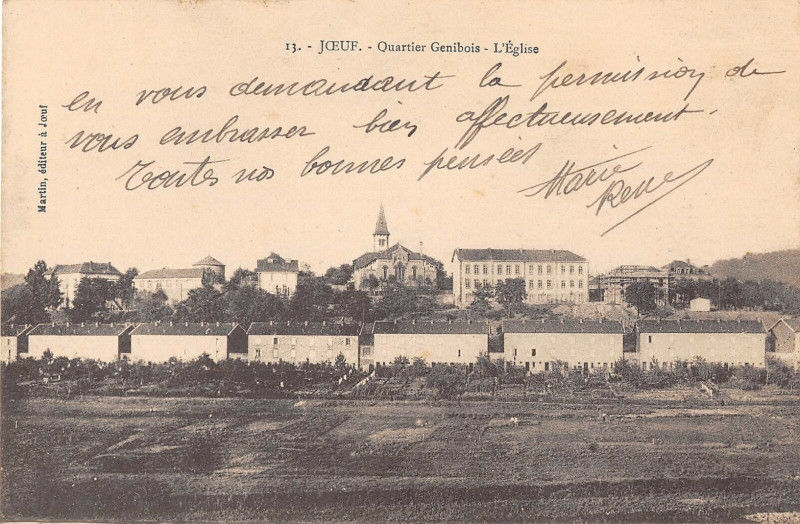 13. - JŒUF. - Quartier Genibois - L'Église
en vous demandant la permission de
vous embrasser bien affectueusement.
Toutes nos bonnes pensées
Marie
René
Martin, éditeur à Jœuf